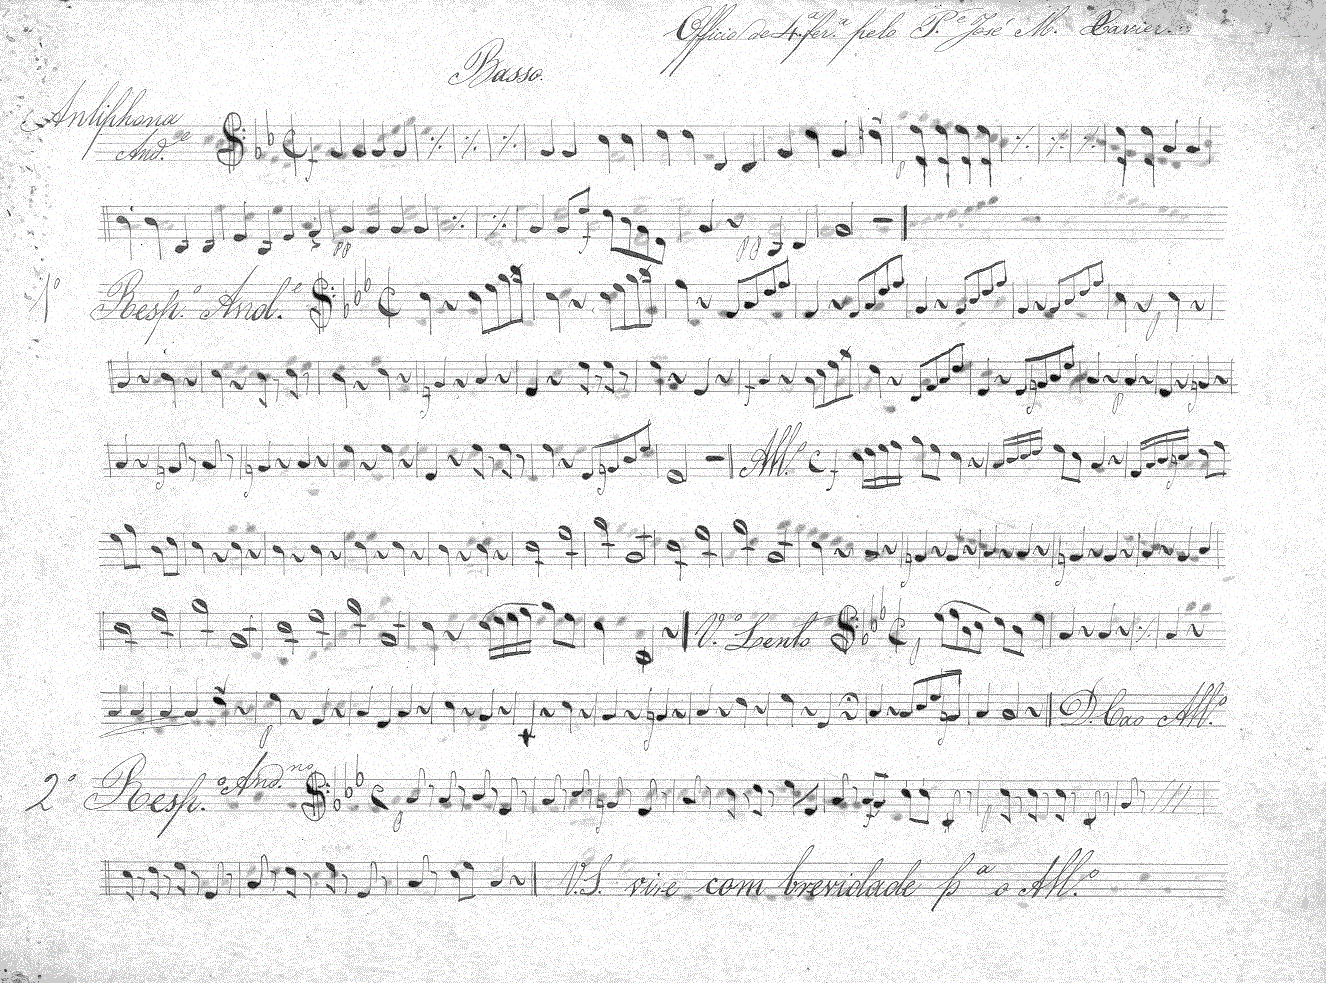 Officio de 4.ª fer.ª pelo P.e José M. Xavier.
Basso.
Antiphona
And.te
f
p
pp
f
pp
1º Resp.º And.e
p
p
All.º
f
V.º Lento
p
p
D. Cao All.º
2º Resp.º And.no
p
p
V.S. vire com brevidade p.ª o All.º